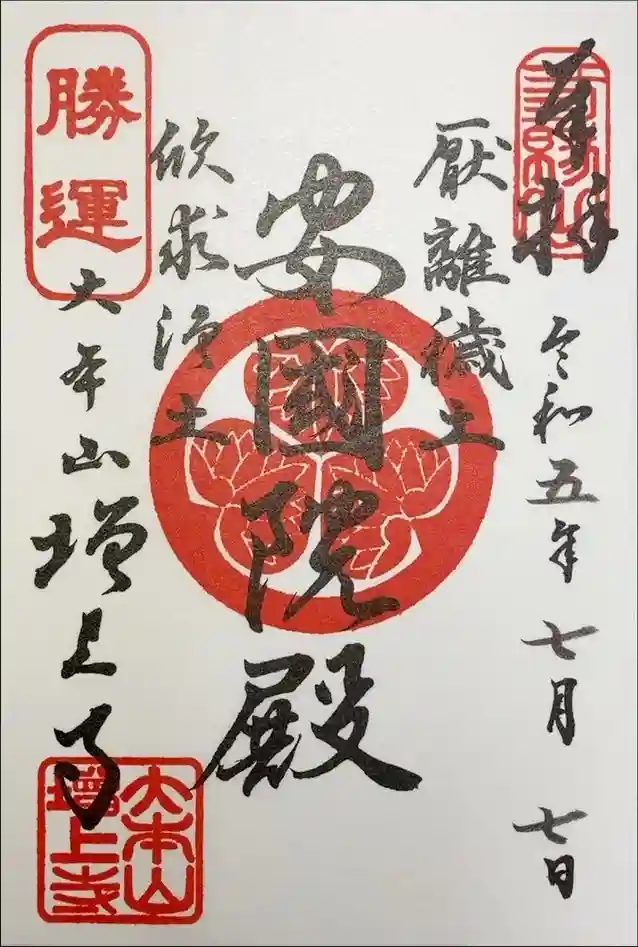 奉拝
三縁山
令和五年 七月 七日
厭離穢土
安國院殿
欣求浄土
勝運
大本山 増上寺
大本山
増上寺